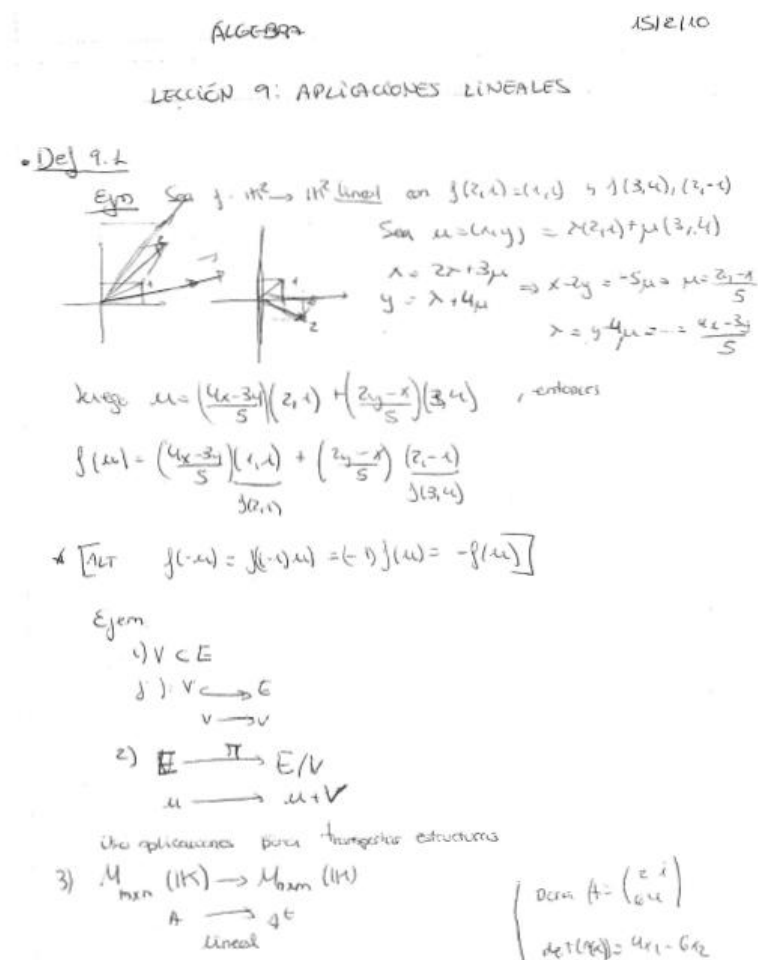 ÁLGEBRA 15/2/10
LECCIÓN 9: APLICACIONES LINEALES
• Def 9.1
Ejm Sea f: K² → K² lineal con f(2,1)=(1,1) y f(3,4), (2,-1)
Sea u=(x,y) = λ(2,1)+μ(3,4)
x = 2λ+3μ
y = λ+4μ
⇒ x-2y = -5μ ⇒ μ = (2y-x)/5
λ = y-4μ = ... = (4x-3y)/5
luego u = ((4x-3y)/5)(2,1) + ((2y-x)/5)(3,4) , entonces
f(u) = ((4x-3y)/5)(1,1) + ((2y-x)/5)(2,-1)
f(2,1) f(3,4)
* [ALT f(-u) = f((-1)u) = (-1)f(u) = -f(u)]
Ejem
1) V ⊂ E
j ): V ↪ E
v → v
2) E —π→ E/V
u → u+V
aplicaciones para transportar estructuras
3) M_{mxn} (K) → M_{nxm} (K)
A → A^t
lineal
A = (2 1
6 4)